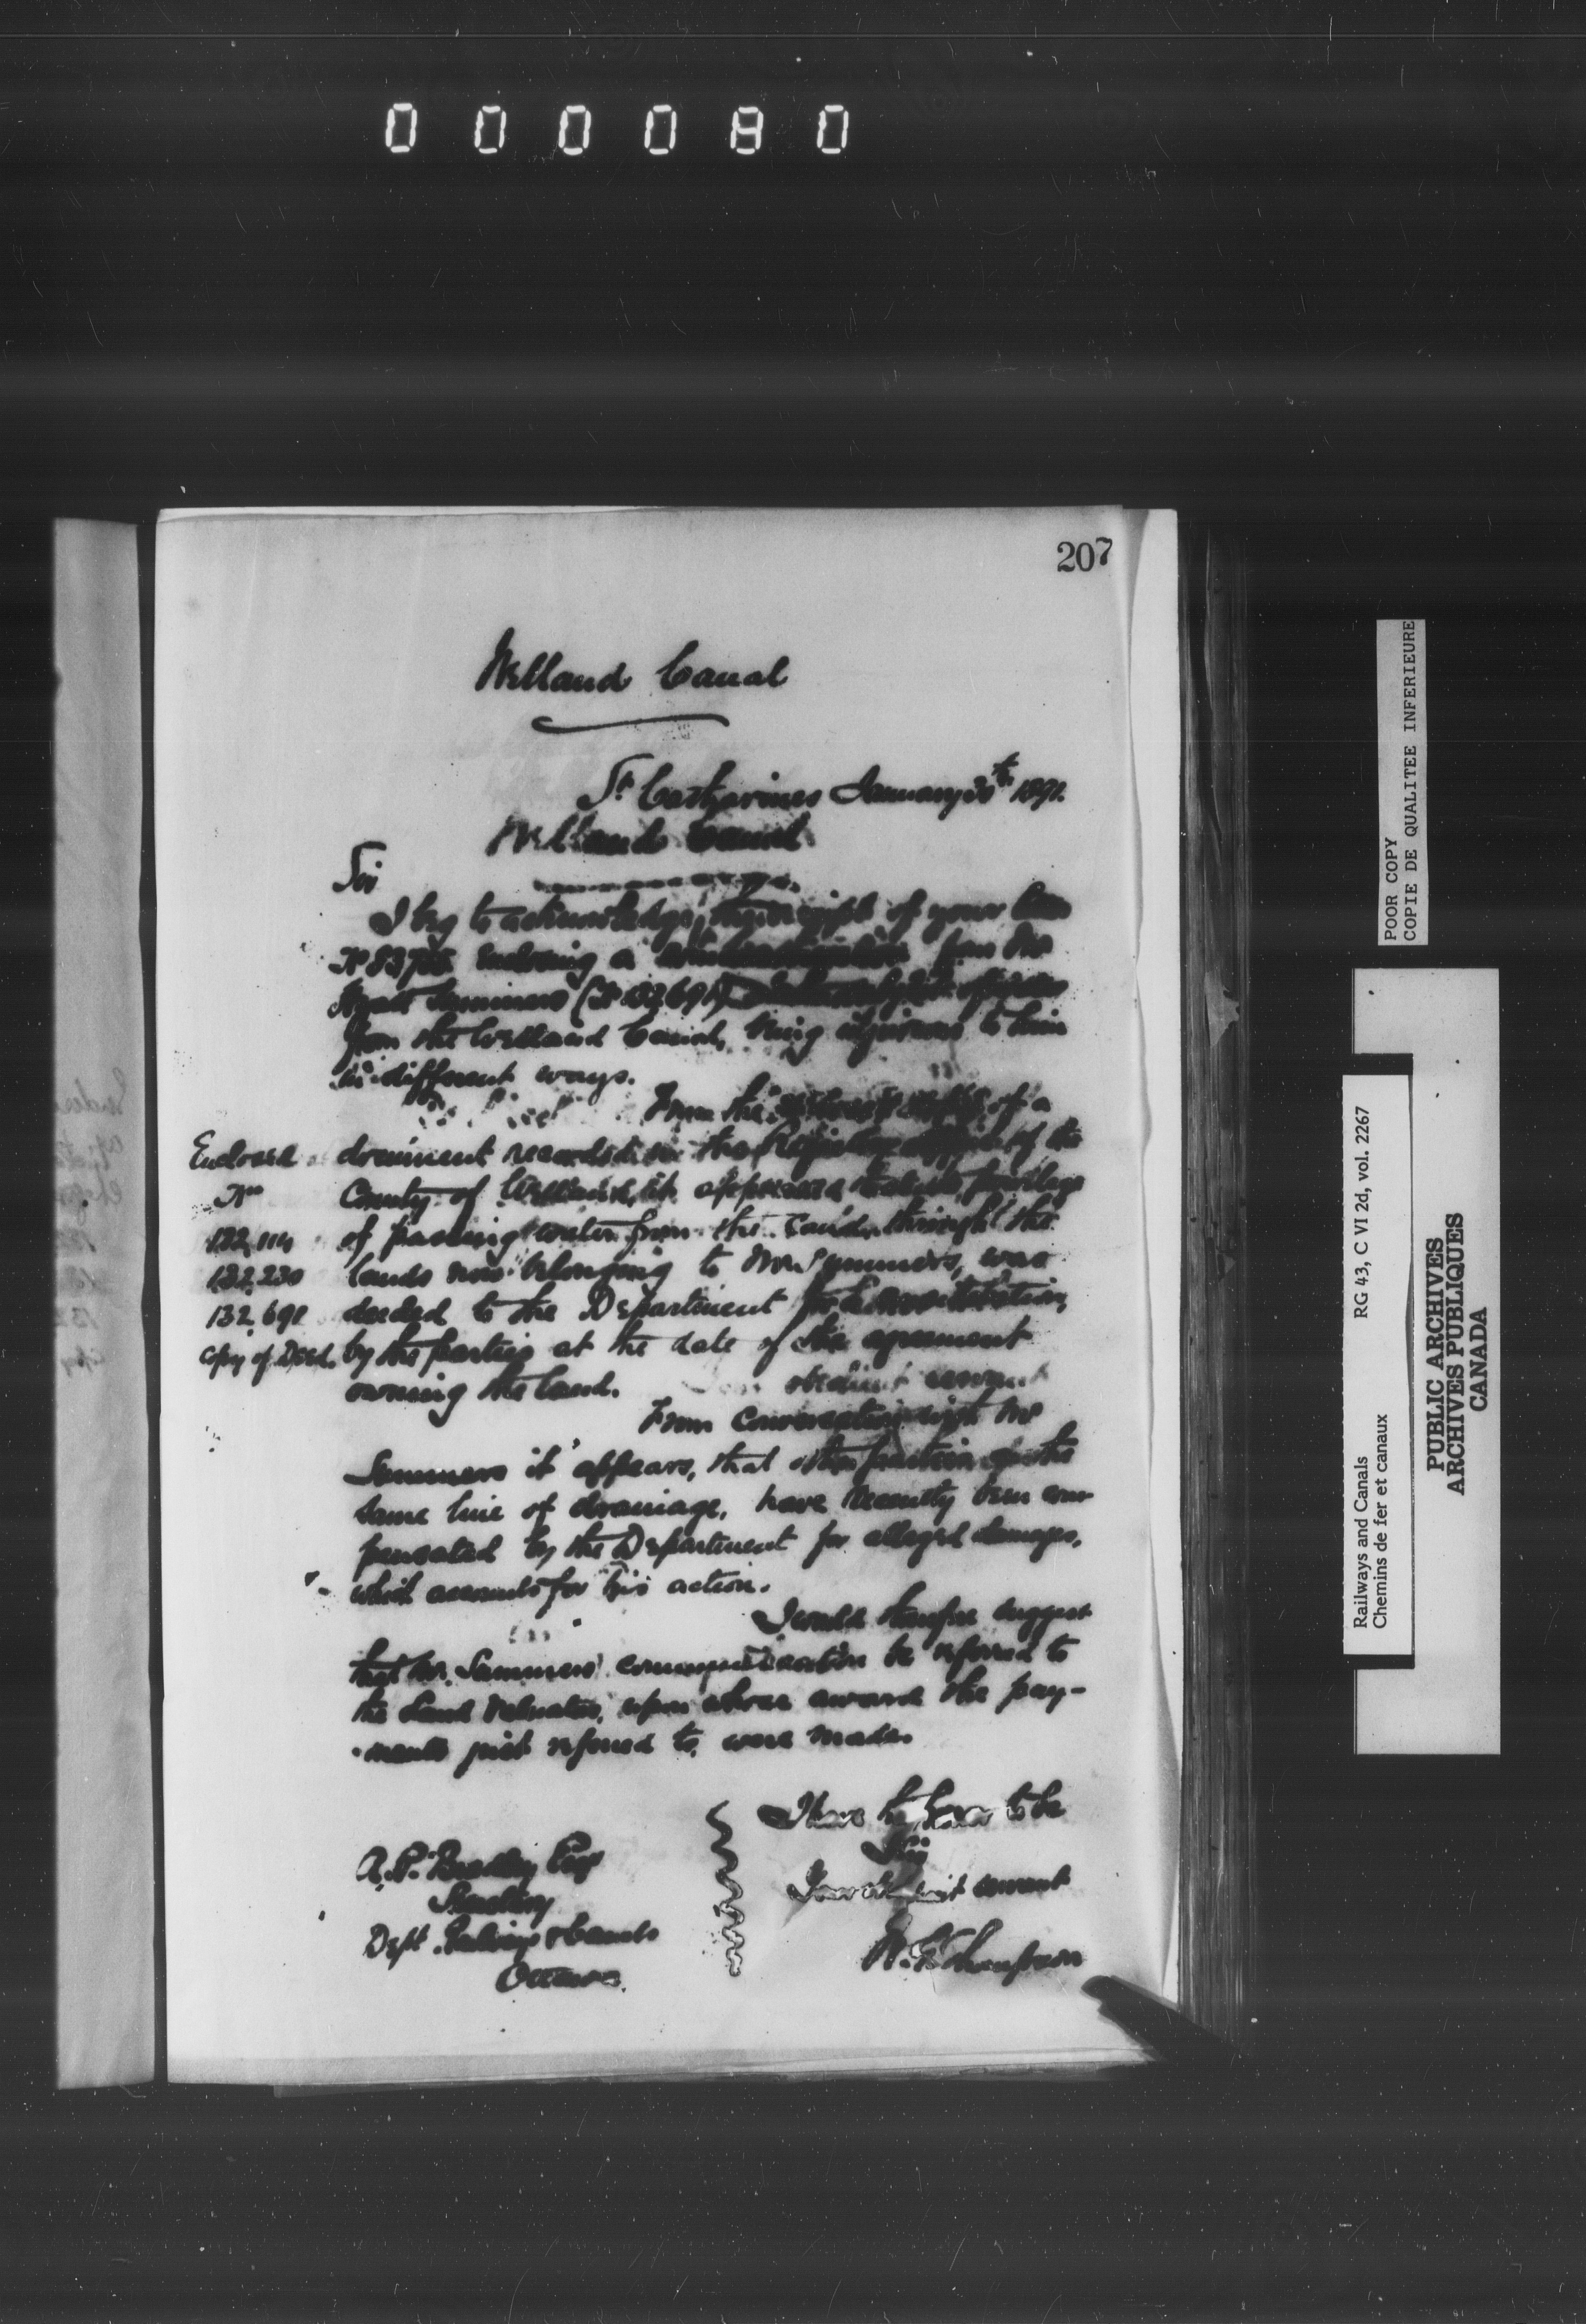 000080
207
Welland Canal
St Catharines January 30th 1891.
Welland Canal
Sir
I beg to acknowledge the receipt of your letter
No enclosing a communication from Mr
Summers (No 132691)
from the Welland Canal, being injurious to him
in different ways.
From the of a
document recorded in the Registry office of the
County of Welland, it appears that the privilege
of passing water from the Canal through the
lands now belonging to Mr Summers, was
deeded to the Department for a consideration,
by the parties at the date of the agreement
owning the land.
obedient servant
Enclosed
No
132,114
132,230
132,691
Copy of Deed.
From conversation with Mr
Summers it appears, that other parties on the
same line of drainage, have recently been com-
pensated by the Department for alleged damages,
which accounts for his action.
I would therefore suggest
that Mr. Summers' communication be referred to
the Land Valuator, upon whose award the pay-
-ments just referred to, were made.
I have the honor to be
Sir
Your obedient servant
W. G. Thompson
A. P. Bradley Esqr
Secretary
Dept. Railways & Canals
Ottawa.
POOR COPY
COPIE DE QUALITEE INFERIEURE
Railways and Canals RG 43, C VI 2d, vol. 2267
Chemins de fer et canaux
PUBLIC ARCHIVES
ARCHIVES PUBLIQUES
CANADA